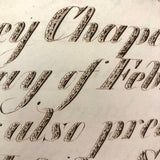 ey Chap
ay of Feb
also pre